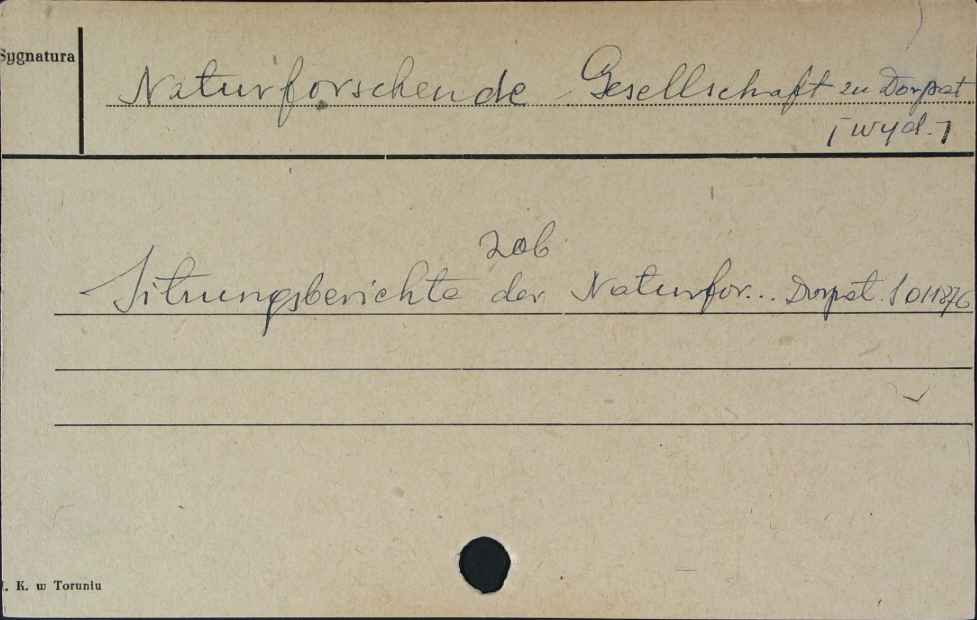 Sygnatura
Naturforschende Gesellschaft zu Dorpat
[wyd.]
zob
Sitzungsberichte der Naturfor... Dorpat. S 011876
K. w Toruniu